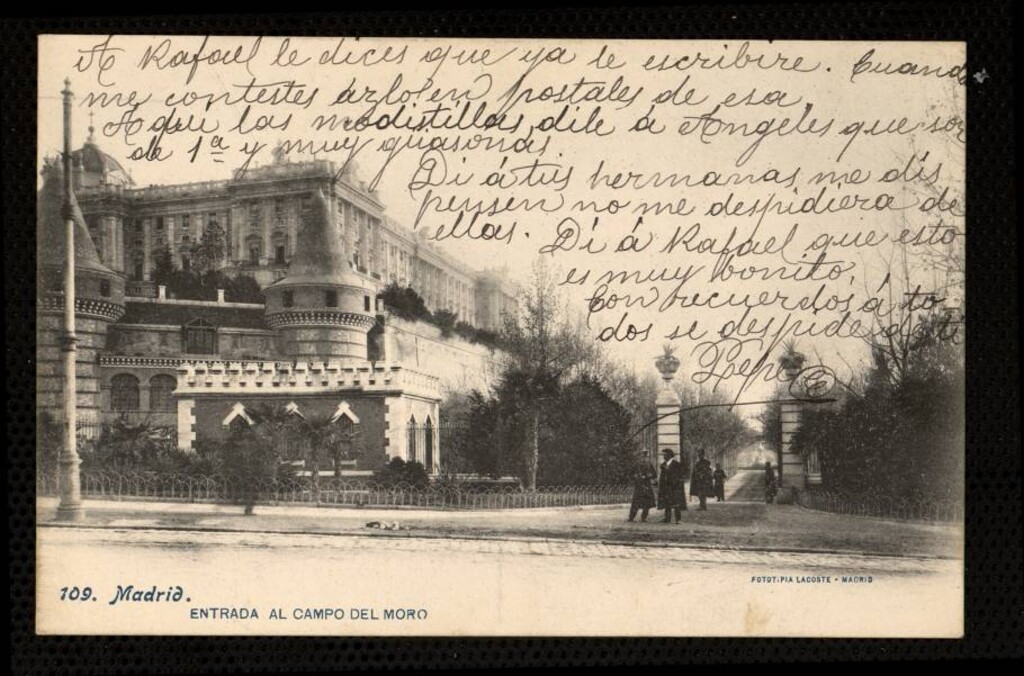 A Rafael le dices que ya le escribire. Cuand
me contestes en postales de esa.
Aqui las modistillas, dile á Angeles que son
de 1ª y muy guasonas.
Di á tus hermanas me dis
pensen no me despidiera de
ellas. Di á Rafael que esto
es muy bonito.
Con recuerdos á to
dos se despide de ti
Pepe
109. Madrid.
ENTRADA AL CAMPO DEL MORO
FOTOTIPIA LACOSTE - MADRID